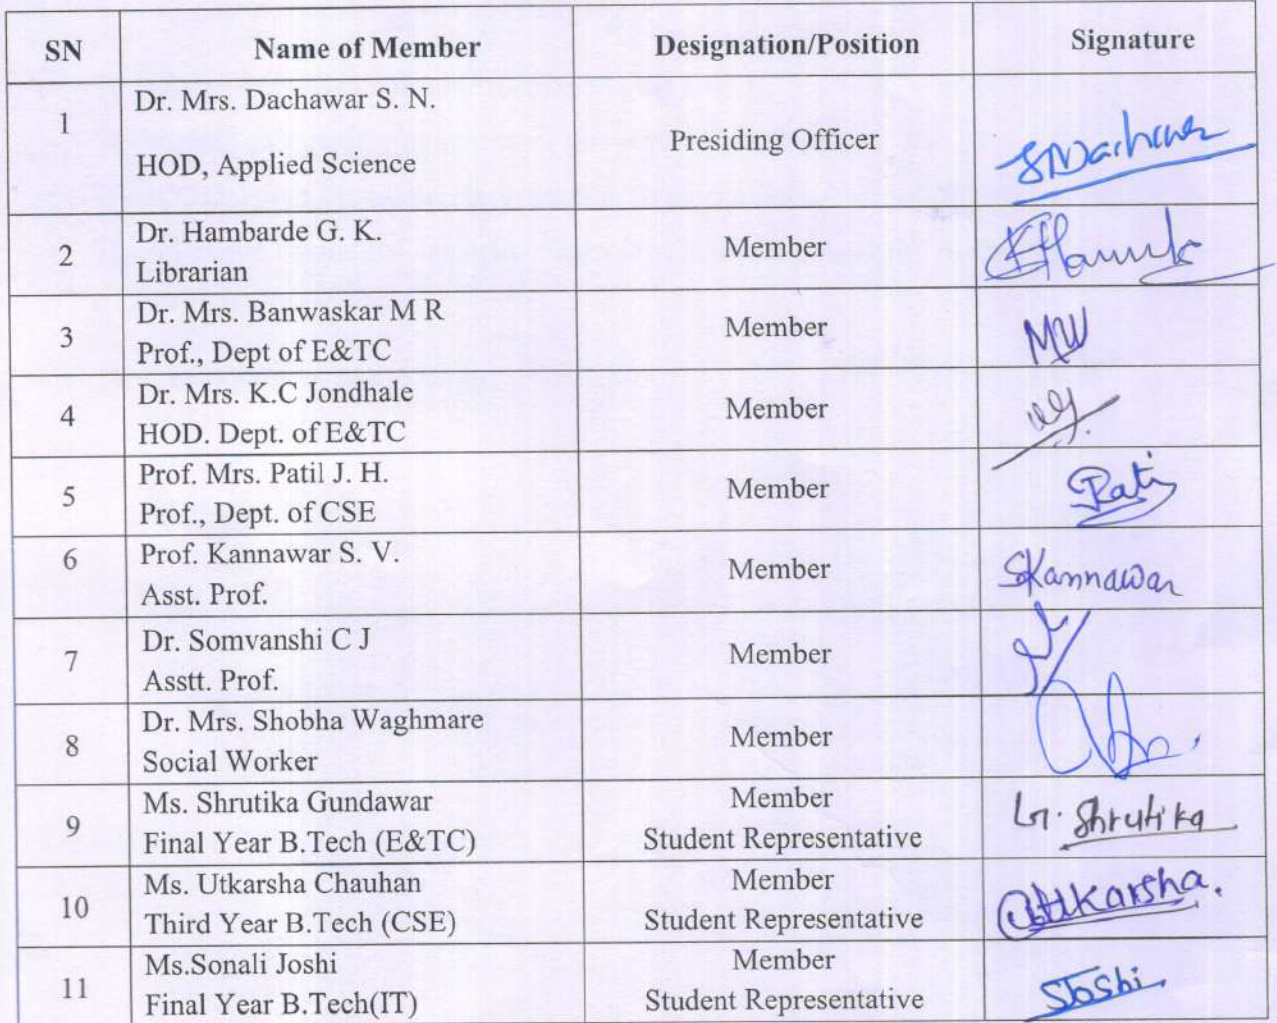 SN Name of Member Designation/Position Signature
1 Dr. Mrs. Dachawar S. N.
HOD, Applied Science
Presiding Officer
2 Dr. Hambarde G. K.
Librarian
Member
3 Dr. Mrs. Banwaskar M R
Prof., Dept of E&TC
Member
4 Dr. Mrs. K.C Jondhale
HOD. Dept. of E&TC
Member
5 Prof. Mrs. Patil J. H.
Prof., Dept. of CSE
Member
6 Prof. Kannawar S. V.
Asst. Prof.
Member
SKannawar
7 Dr. Somvanshi C J
Asstt. Prof.
Member
8 Dr. Mrs. Shobha Waghmare
Social Worker
Member
9 Ms. Shrutika Gundawar
Final Year B.Tech (E&TC)
Member
Student Representative
Shrutika
10 Ms. Utkarsha Chauhan
Third Year B.Tech (CSE)
Member
Student Representative
11 Ms.Sonali Joshi
Final Year B.Tech(IT)
Member
Student Representative
SJoshi